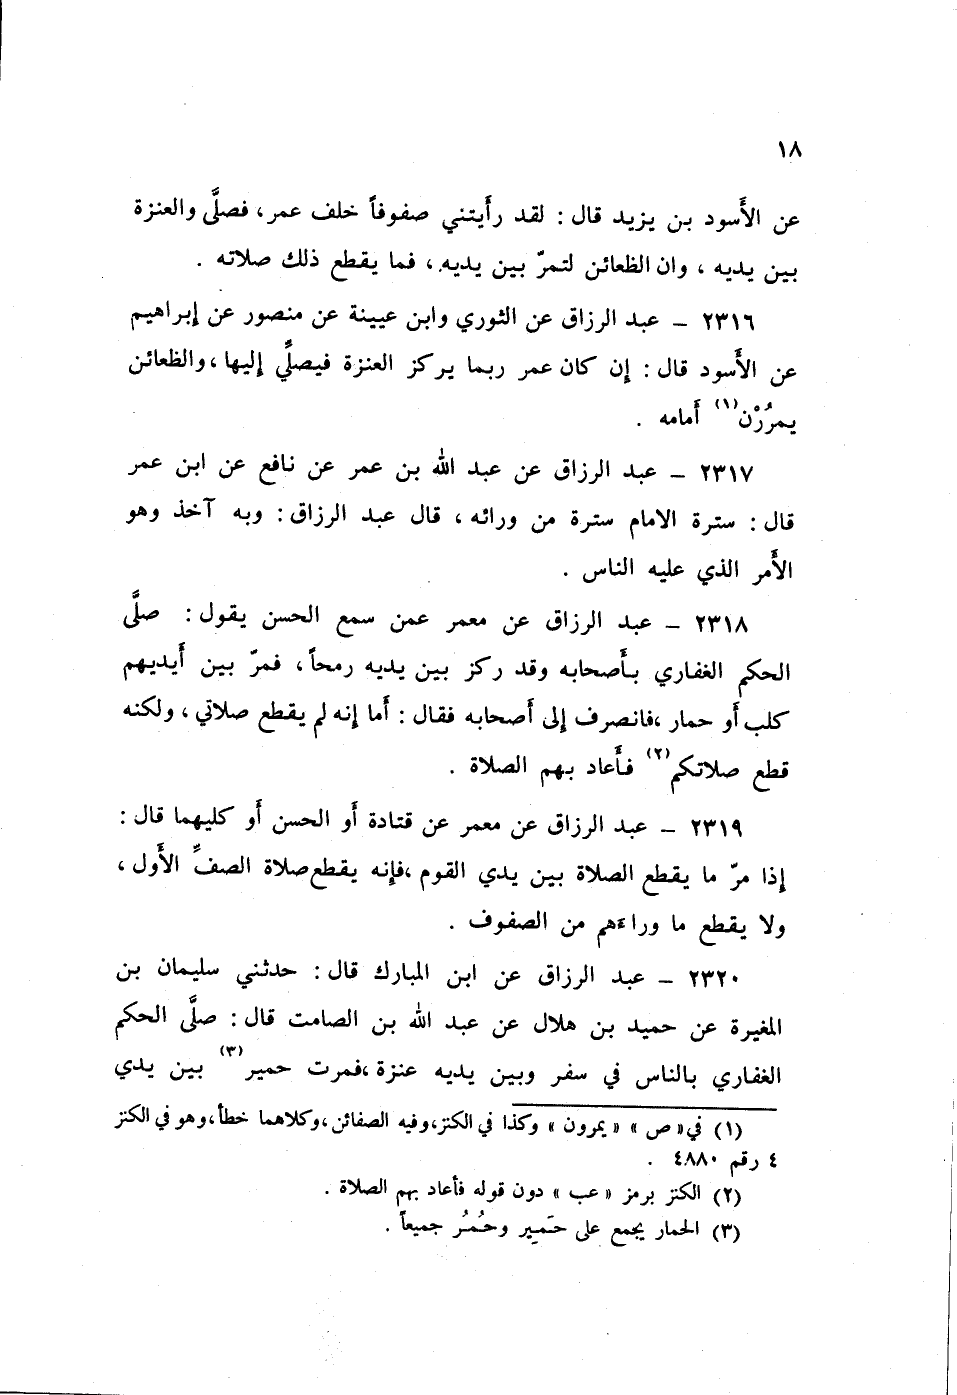 ١٨
عن الأسود بن يزيد قال : لقد رأيتني صفوفاً خلف عمر، فصلَّى والعنزة
بين يديه ، وان الظعائن لتمرّ بين يديه ، فما يقطع ذلك صلاته .
٢٣١٦ – عبد الرزاق عن الثوري وابن عيينة عن منصور عن إبراهيم
عن الأسود قال : إن كان عمر ربما يركز العنزة فيصلِّي إليها ، والظعائن
يمرُرْن(١) أمامه .
٢٣١٧ – عبد الرزاق عن عبد الله بن عمر عن نافع عن ابن عمر
قال : سترة الامام سترة من ورائه ، قال عبد الرزاق : وبه آخذ وهو
الأمر الذي عليه الناس .
٢٣١٨ – عبد الرزاق عن معمر عمن سمع الحسن يقول : صلَّى
الحكم الغفاري بأصحابه وقد ركز بين يديه رمحاً ، فمرّ بين أيديهم
كلب أو حمار ، فانصرف إلى أصحابه فقال : أما إنه لم يقطع صلاتي ، ولكنه
قطع صلاتكم(٢) فأعاد بهم الصلاة .
٢٣١٩ – عبد الرزاق عن معمر عن قتادة أو الحسن أو كليهما قال :
إذا مرّ ما يقطع الصلاة بين يدي القوم ، فإنه يقطع صلاة الصفّ الأول ،
ولا يقطع ما وراءهم من الصفوف .
٢٣٢٠ – عبد الرزاق عن ابن المبارك قال : حدثني سليمان بن
المغيرة عن حميد بن هلال عن عبد الله بن الصامت قال : صلَّى الحكم
الغفاري بالناس في سفر وبين يديه عنزة ، فمرت حمير(٣) بين يدي
(١) في « ص » « يمرون » وكذا في الكنز، وفيه الصفائن ، وكلاهما خطأ ، وهو في الكنز
٤ رقم ٤٨٨٠ .
(٢) الكنز برمز « عب » دون قوله فأعاد بهم الصلاة .
(٣) الحمار يجمع على حَمِير وحُمُر جميعاً .